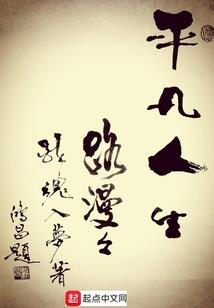 平凡人生
路漫々
张魂入梦著
鸿昌题
起点中文网